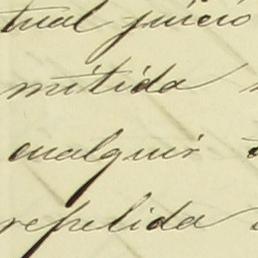 tual juicio
mitida
cualquir
repelida